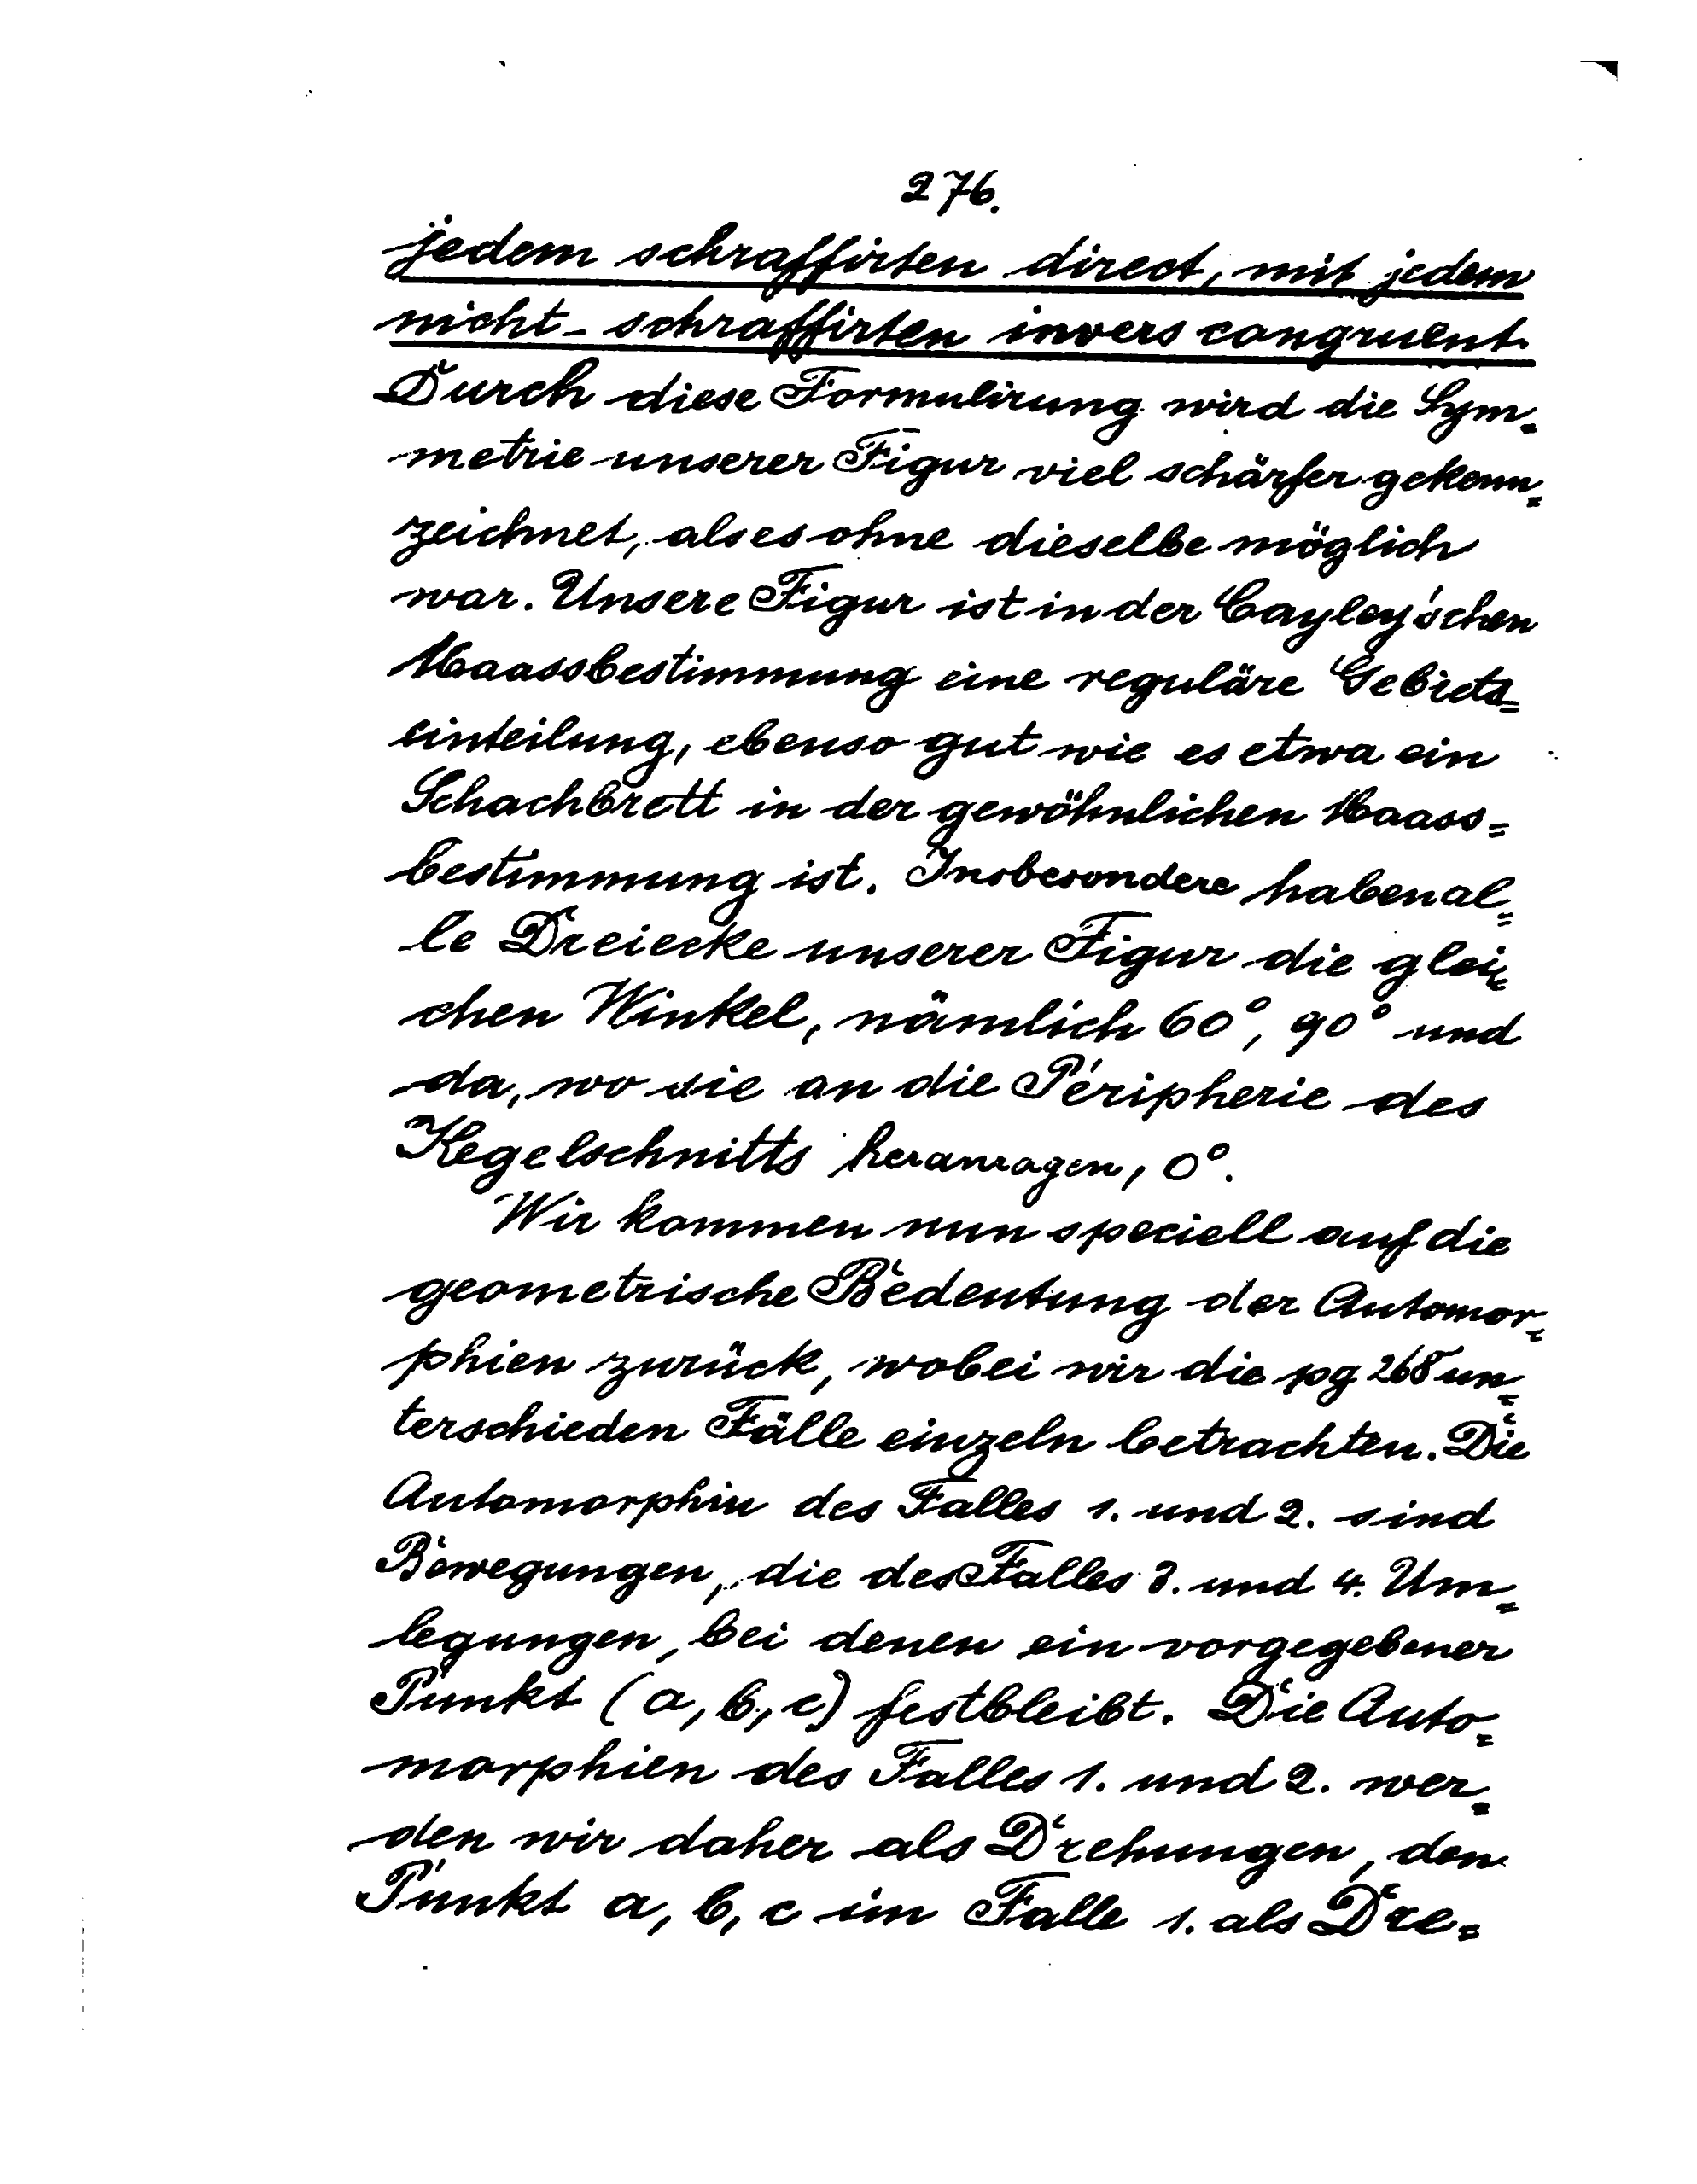 276.
jedem schraffirten direct, mit jedem
nicht-schraffirten invers congruent.
Durch diese Formulirung wird die Sym=
metrie unserer Figur viel schärfer gekenn=
zeichnet, als es ohne dieselbe möglich
war. Unsere Figur ist in der Cayley'schen
Maassbestimmung eine reguläre Gebiets=
einteilung, ebenso gut wie es etwa ein
Schachbrett in der gewöhnlichen Maass=
bestimmung ist. Insbesondere haben al=
le Dreiecke unserer Figur die glei=
chen Winkel, nämlich 60°, 90° und
da, wo sie an die Peripherie des
Kegelschnitts heranragen, 0°.
Wir kommen nun speciell auf die
geometrische Bedeutung der Automor=
phien zurück, wobei wir die pg 268 un=
terschieden Fälle einzeln betrachten. Die
Automorphien des Falles 1. und 2. sind
Bewegungen, die des Falles 3. und 4. Um=
legungen, bei denen ein vorgegebener
Punkt (a, b, c) festbleibt. Die Auto=
morphien des Falles 1. und 2. wer=
den wir daher als Drehungen, den
Punkt a, b, c im Falle 1. als Dre=